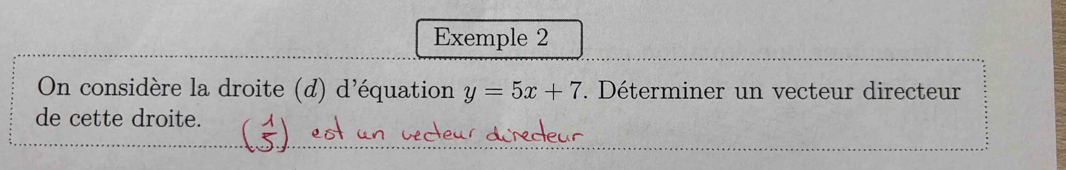 Exemple 2
On considère la droite (d) d'équation y = 5x + 7. Déterminer un vecteur directeur
de cette droite.
(1 5) est un vecteur directeur